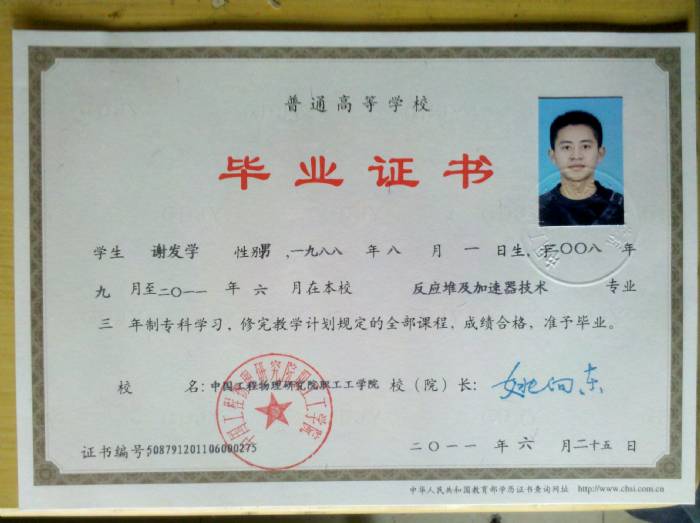 普通高等学校
毕业证书
学生 谢发学 性别男,一九八八 年 八 月 一 日生,于二〇〇八 年
九 月至二〇一一 年 六 月在本校 反应堆及加速器技术 专业
三 年制专科学习,修完教学计划规定的全部课程,成绩合格,准予毕业。
校 名:中国工程物理研究院职工工学院 校(院)长:姚向东
中国工程物理研究院职工工学院
证书编号 508791201106000275 二〇一一 年 六 月二十五 日
中华人民共和国教育部学历证书查询网址 http://www.chsi.com.cn